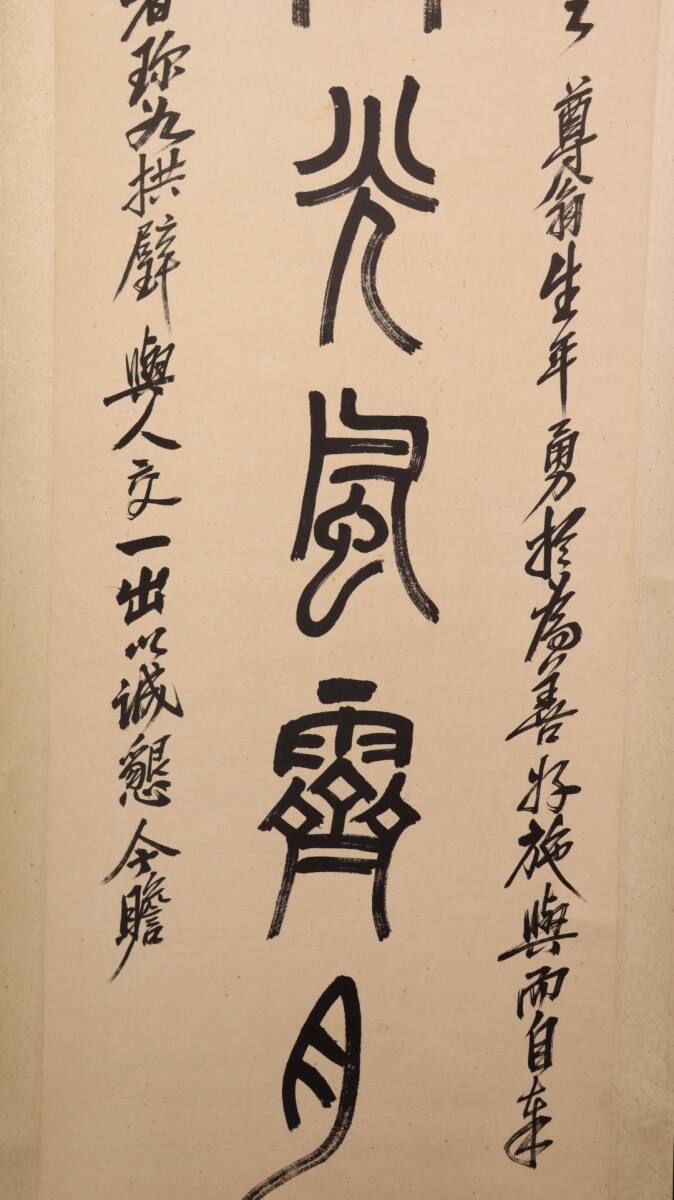 尊翁生年勇於為善好施與而自奉
光風霽月
者珎如拱璧與人交一出以誠懇今瞻